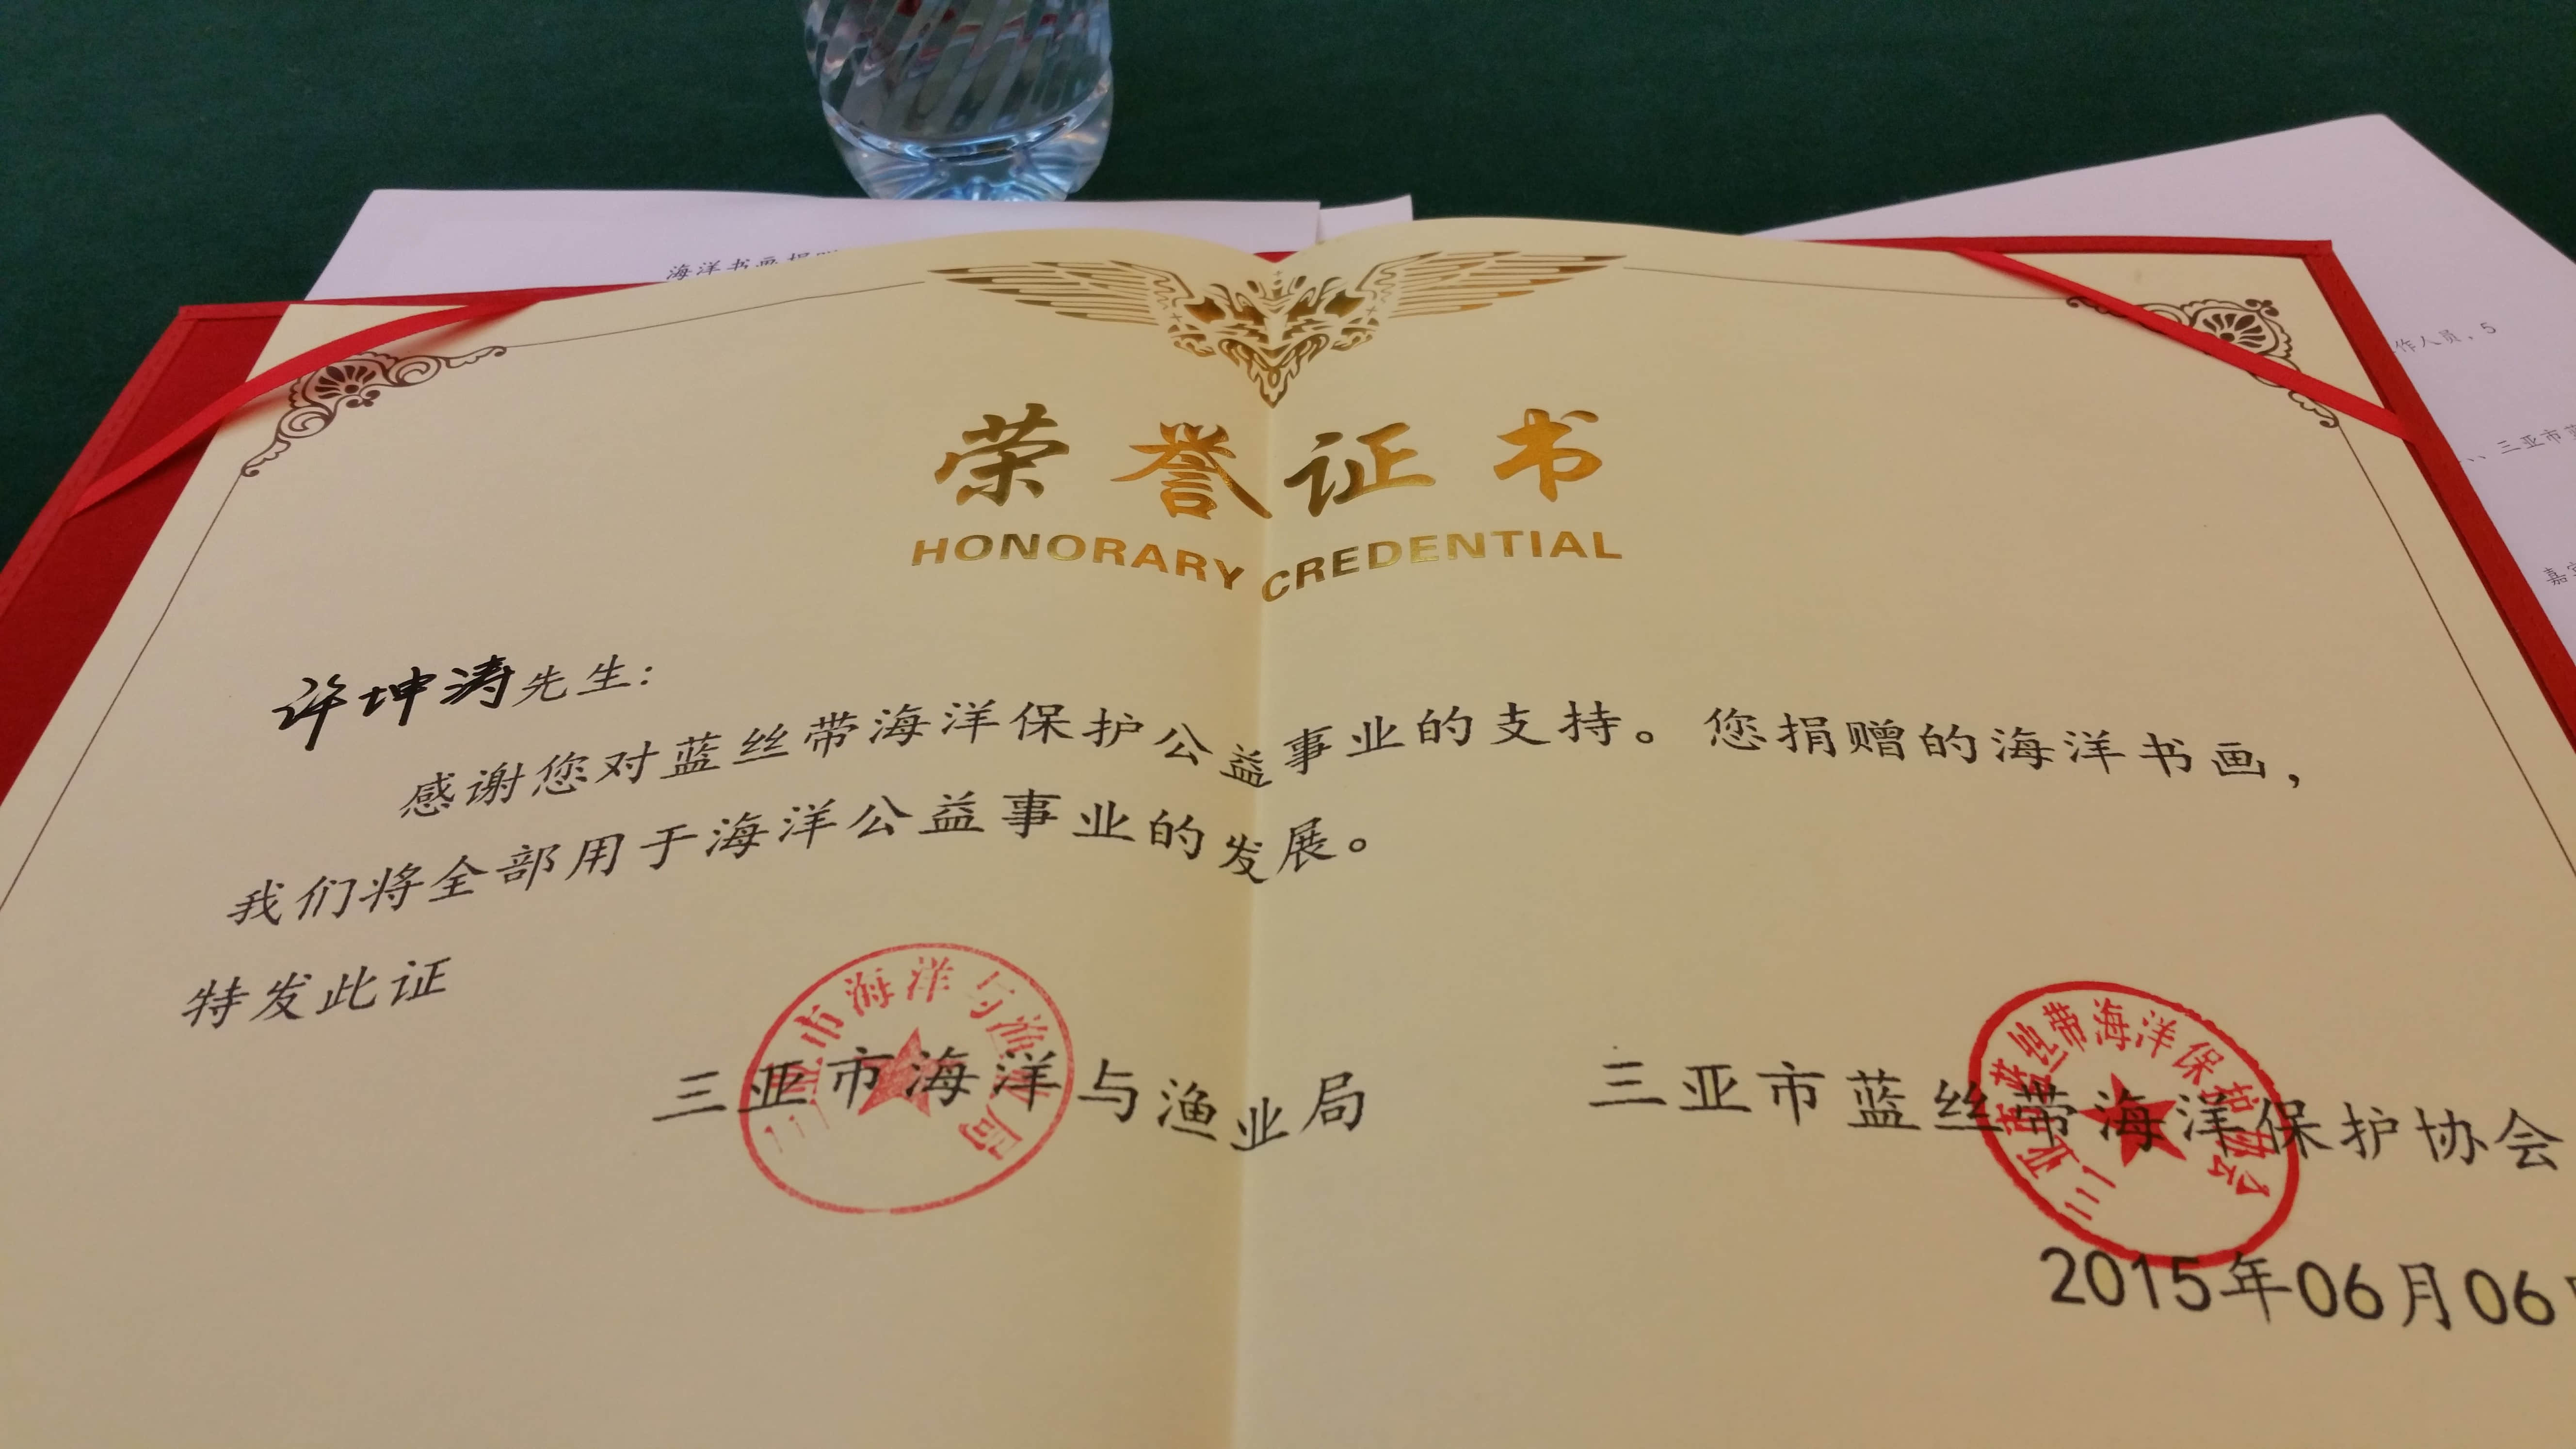 海洋书画捐
作人员，5
三亚市
嘉
荣誉证书
HONORARY CREDENTIAL
许坤涛先生：
感谢您对蓝丝带海洋保护公益事业的支持。您捐赠的海洋书画，
我们将全部用于海洋公益事业的发展。
特发此证
三亚市海洋与渔业局
三亚市蓝丝带海洋保护协会
2015年06月06
三亚市海洋与渔业局
三亚市蓝丝带海洋保护协会